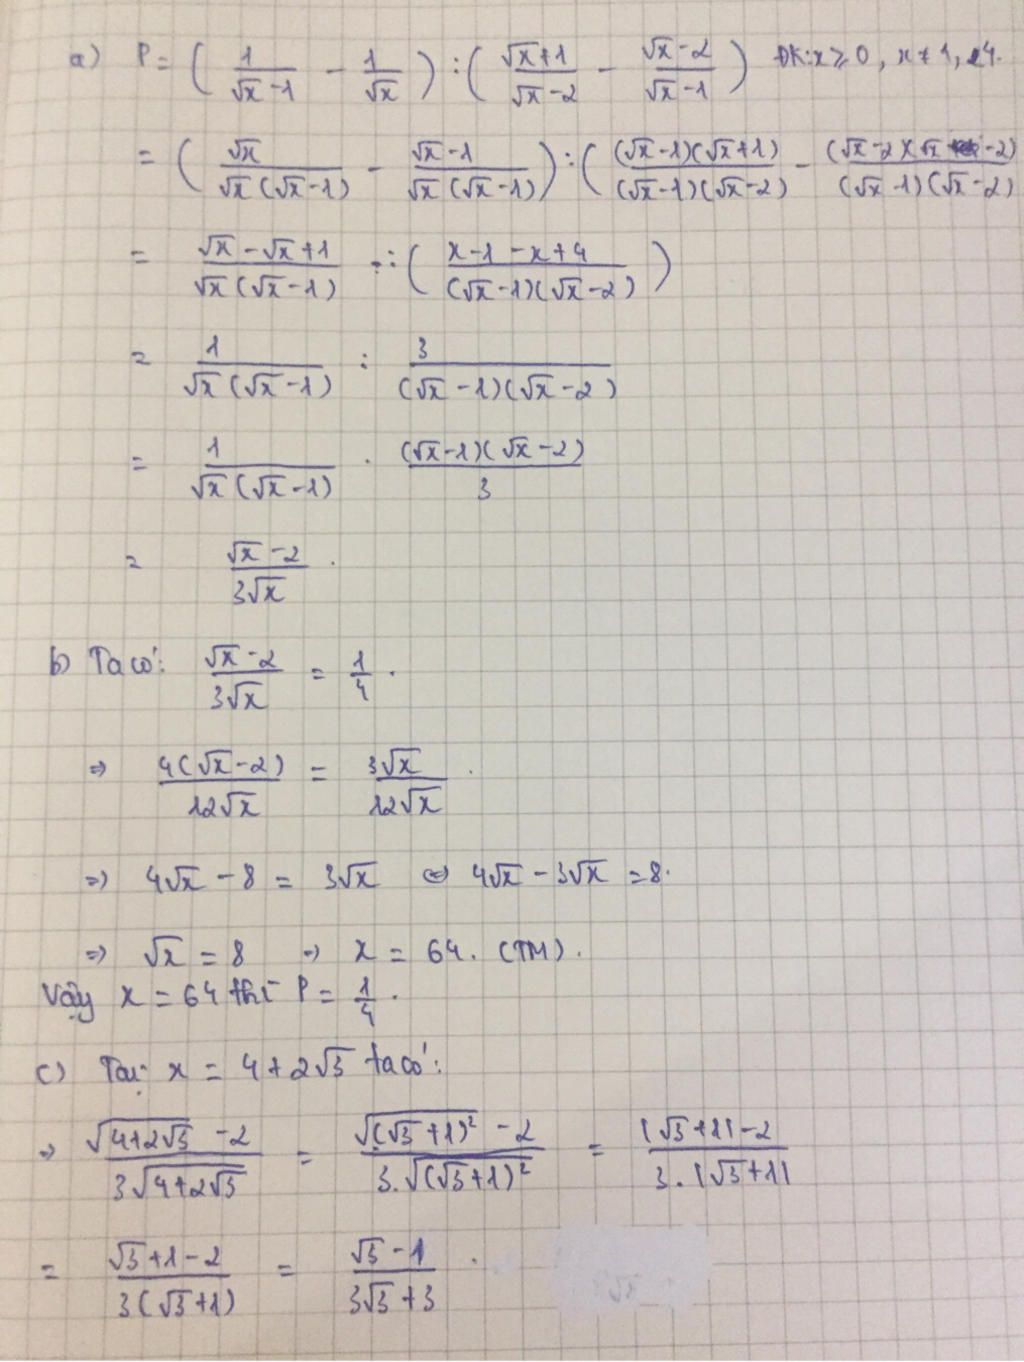 a) P = ( 1/(√x -1) - 1/√x ) : ( (√x+1)/(√x-2) - (√x-2)/(√x-1) ) ĐK: x ≥ 0, x ≠ 1, 4.
= ( √x/(√x(√x-1)) - (√x-1)/(√x(√x-1)) ) : ( (√x-1)(√x+1)/((√x-1)(√x-2)) - (√x-2)(√x-2)/((√x-1)(√x-2))
= (√x-√x+1)/(√x(√x-1)) : ( (x-1-x+4)/((√x-1)(√x-2)) )
= 1/(√x(√x-1)) : 3/((√x-1)(√x-2))
= 1/(√x(√x-1)) . (√x-1)(√x-2)/3
= (√x-2)/(3√x) .
b) Ta có: (√x-2)/(3√x) = 1/4 .
⇒ 4(√x-2)/(12√x) = 3√x/(12√x) .
⇒ 4√x - 8 = 3√x ⇔ 4√x - 3√x = 8.
⇒ √x = 8 ⇒ x = 64. (TM).
Vậy x = 64 thì P = 1/4 .
c) Tại x = 4+2√3 ta có:
⇒ (√(4+2√3) -2)/(3√(4+2√3)) = (√((√3+1)²) -2)/(3.√((√3+1)²)) = (|√3+1|-2)/(3.|√3+1|)
= (√3+1-2)/(3(√3+1)) = (√3-1)/(3√3+3) .